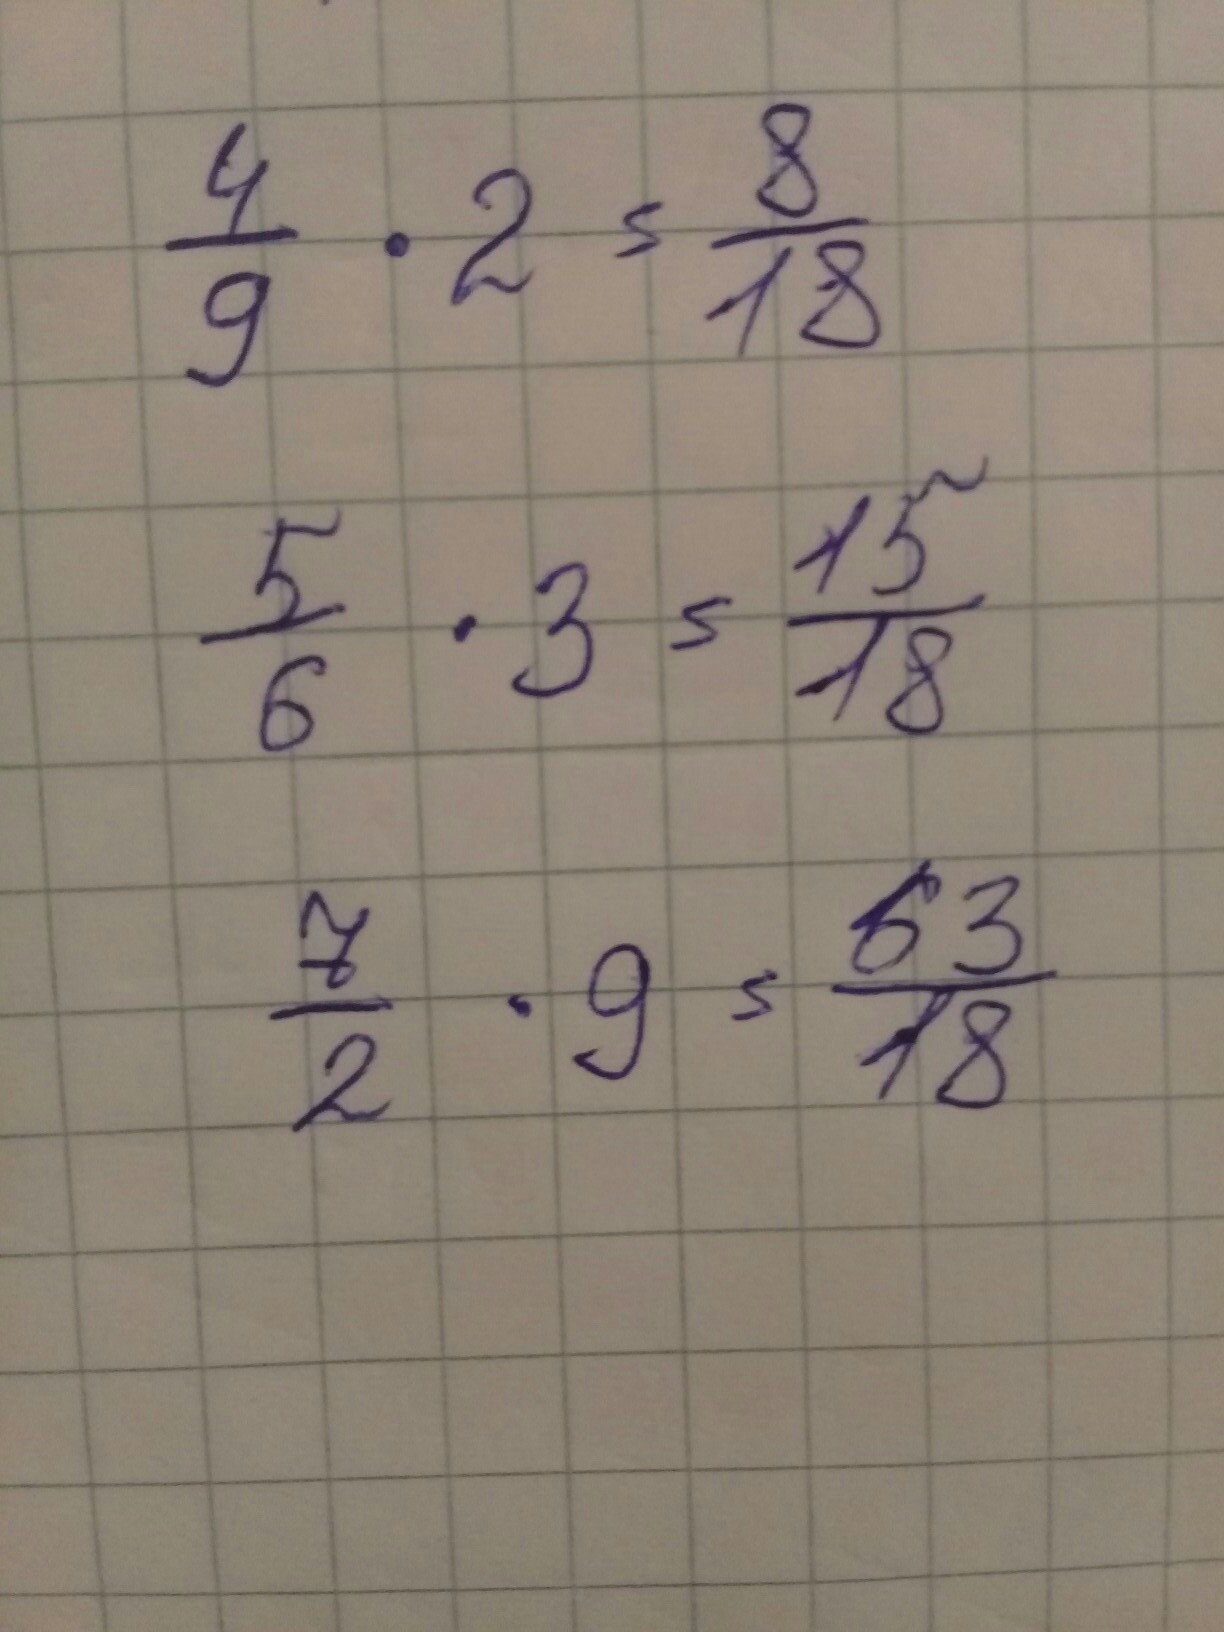 4/9 · 2 = 8/18
5/6 · 3 = 15/18
7/2 · 9 = 63/18